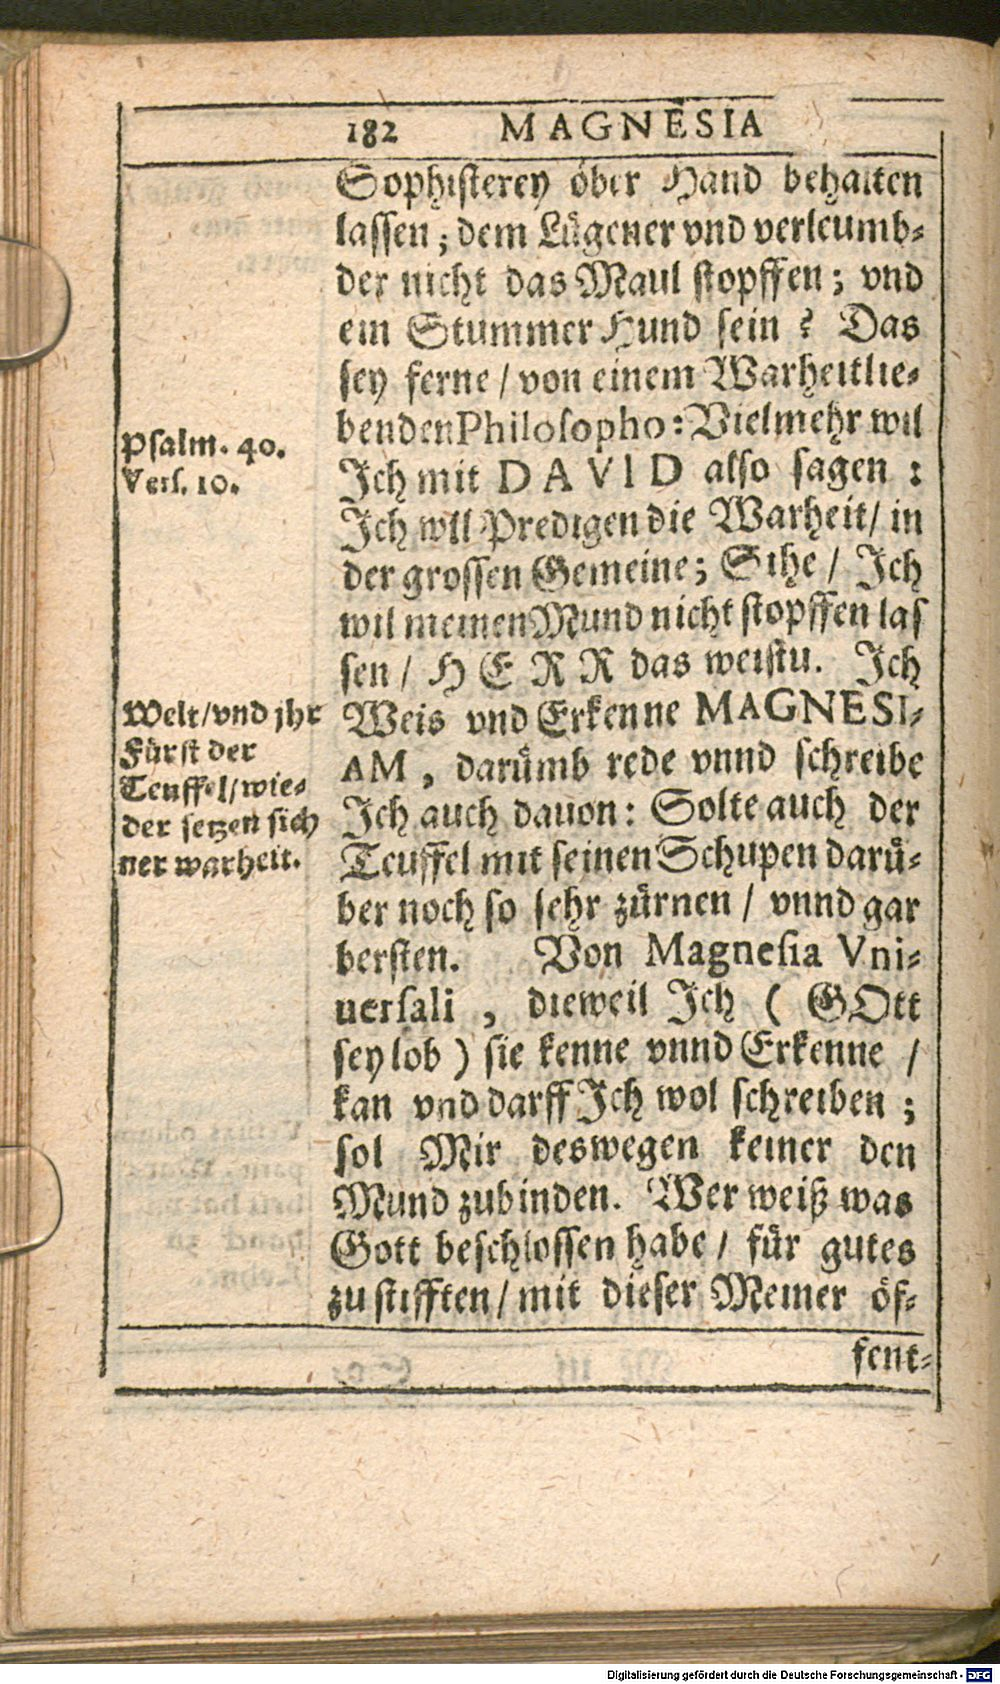 182 MAGNESIA
Sophisterey öber Hand behalten
lassen; dem Lügener vnd verleumb-
der nicht das Maul stopffen; vnd
ein Stummer Hund sein? Das
sey ferne / von einem Warheitlie-
benden Philosopho: Vielmehr wil
Psalm. 40.
Vers. 10.
Ich mit DAVID also sagen:
Ich wil Predigen die Warheit / in
der grossen Gemeine; Sihe / Ich
wil meinen Mund nicht stopffen las
sen / HERR das weistu. Ich
Welt / vnd jhr
Fürst der
Teuffel / wie-
der setzen sich
ner warheit.
Weis vnd Erkenne MAGNESI-
AM, darümb rede vnnd schreibe
Ich auch dauon: Solte auch der
Teuffel mit seinen Schupen darü-
ber noch so sehr zürnen / vnnd gar
bersten. Von Magnesia Vni-
uersali, dieweil Ich (GOtt
sey lob) sie kenne vnnd Erkenne /
kan vnd darff Ich wol schreiben;
sol Mir deswegen keiner den
Mund zubinden. Wer weiß was
Gott beschlossen habe / für gutes
zu stifften / mit dieser Meiner öf-
fent-
Digitalisierung gefördert durch die Deutsche Forschungsgemeinschaft - DFG